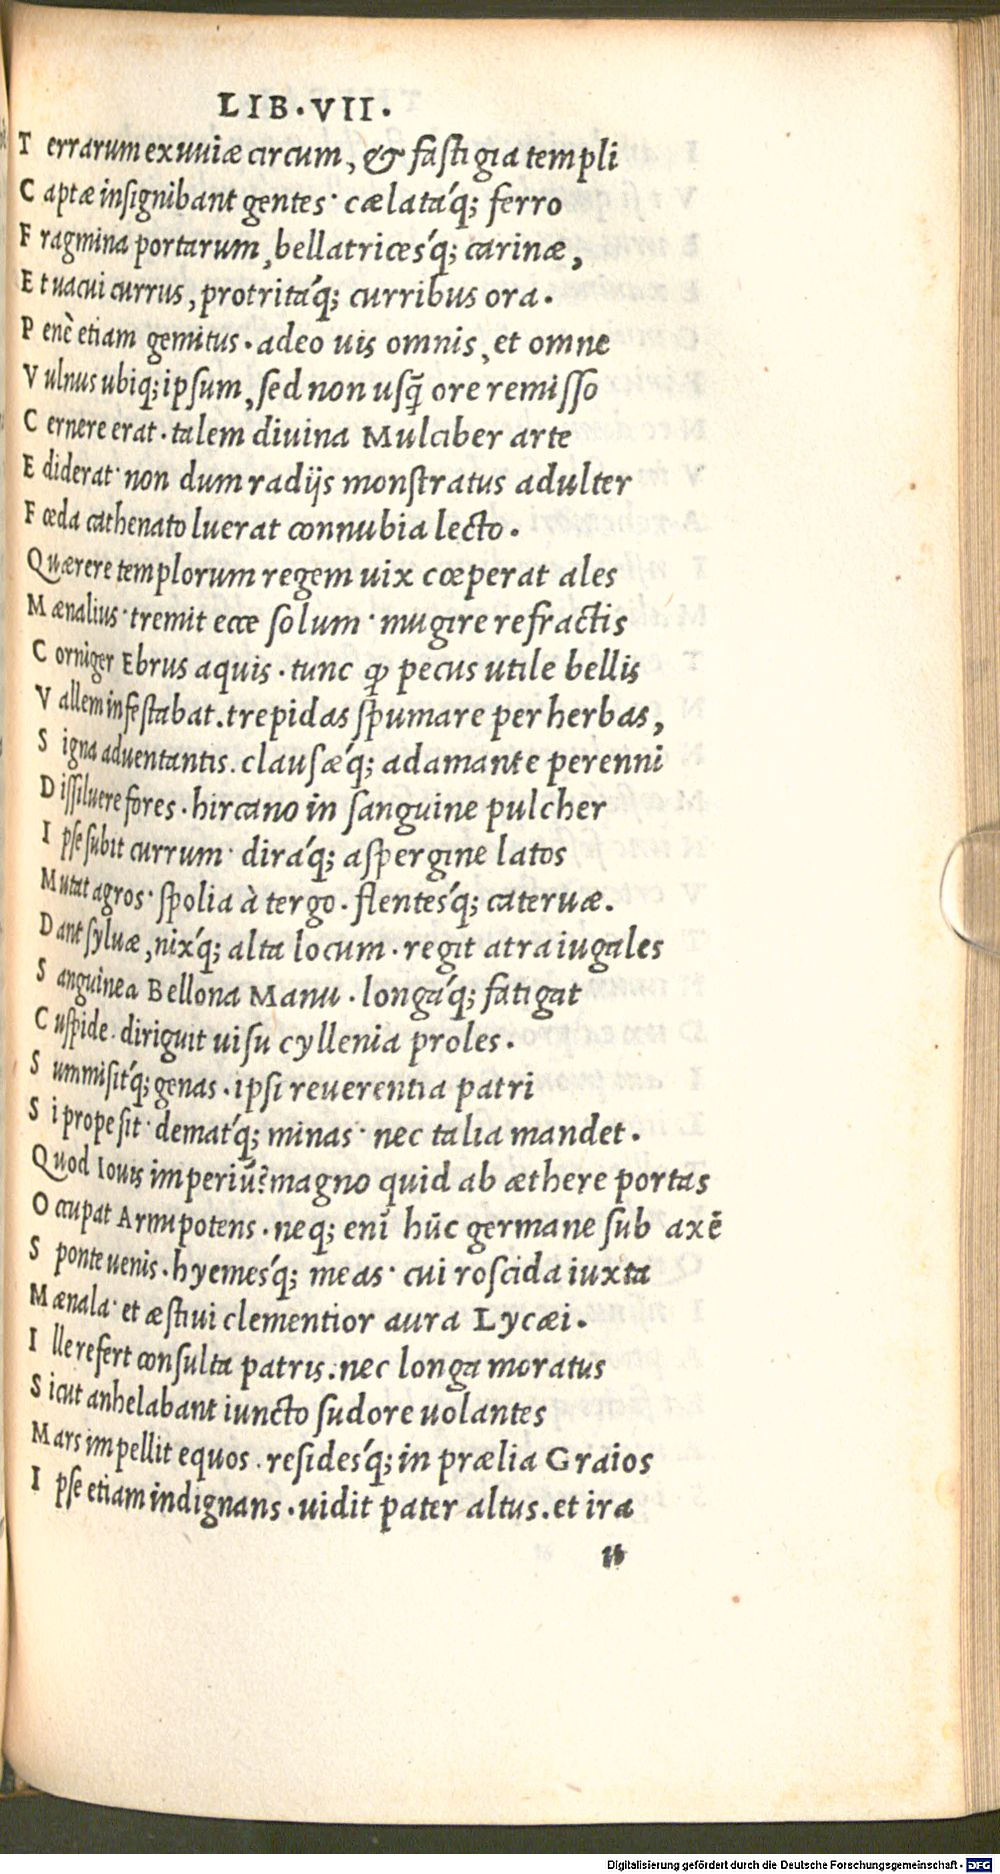 LIB·VII·
T errarum exuuiæ circum, & fastigia templi
C aptæ insignibant gentes· cælatáq; ferro
F ragmina portarum, bellatricesq́; carinæ,
E t uacui currus, protritáq; curribus ora.
P enè etiam gemitus. adeo uis omnis, et omne
V ulnus ubiq; ipsum, sed non usq̃ ore remisso
C ernere erat. talem diuina Mulciber arte
E diderat· non dum radijs monstratus adulter
F œda cathenato luerat connubia lecto.
Quærere templorum regem uix cœperat ales
M ænalius· tremit ecce solum· mugire refractis
C orniger Ebrus aquis. tunc ꝙ pecus utile bellis
V allem infestabat. trepidas spumare per herbas,
S igna aduentantis. clausæq́; adamante perenni
D issiluere fores. hircano in sanguine pulcher
I pse subit currum· diráq; aspergine latos
Mutat agros· spolia à tergo. flentesq́; cateruæ.
D ant syluæ, nixq́; alta locum. regit atra iugales
S anguinea Bellona Manu. longáq; fatigat
C uspide. diriguit uisu cyllenia proles.
S ummisitq́; genas. ipsi reuerentia patri
S i prope sit· dematq́; minas· nec talia mandet.
Quod Iouis imperiũ? magno quid ab æthere portas
O ccupat Armipotens. neq; enĩ hũc germane sub axẽ
S ponte uenis. hyemesq́; meas· cui roscida iuxta
M ænala· et æstiui clementior aura Lycæi.
I lle refert consulta patris. nec longa moratus
S icut anhelabant iuncto sudore uolantes
M ars impellit equos. residesq́; in prælia Graios
I pse etiam indignans. uidit pater altus. et ira
Digitalisierung gefördert durch die Deutsche Forschungsgemeinschaft - DFG